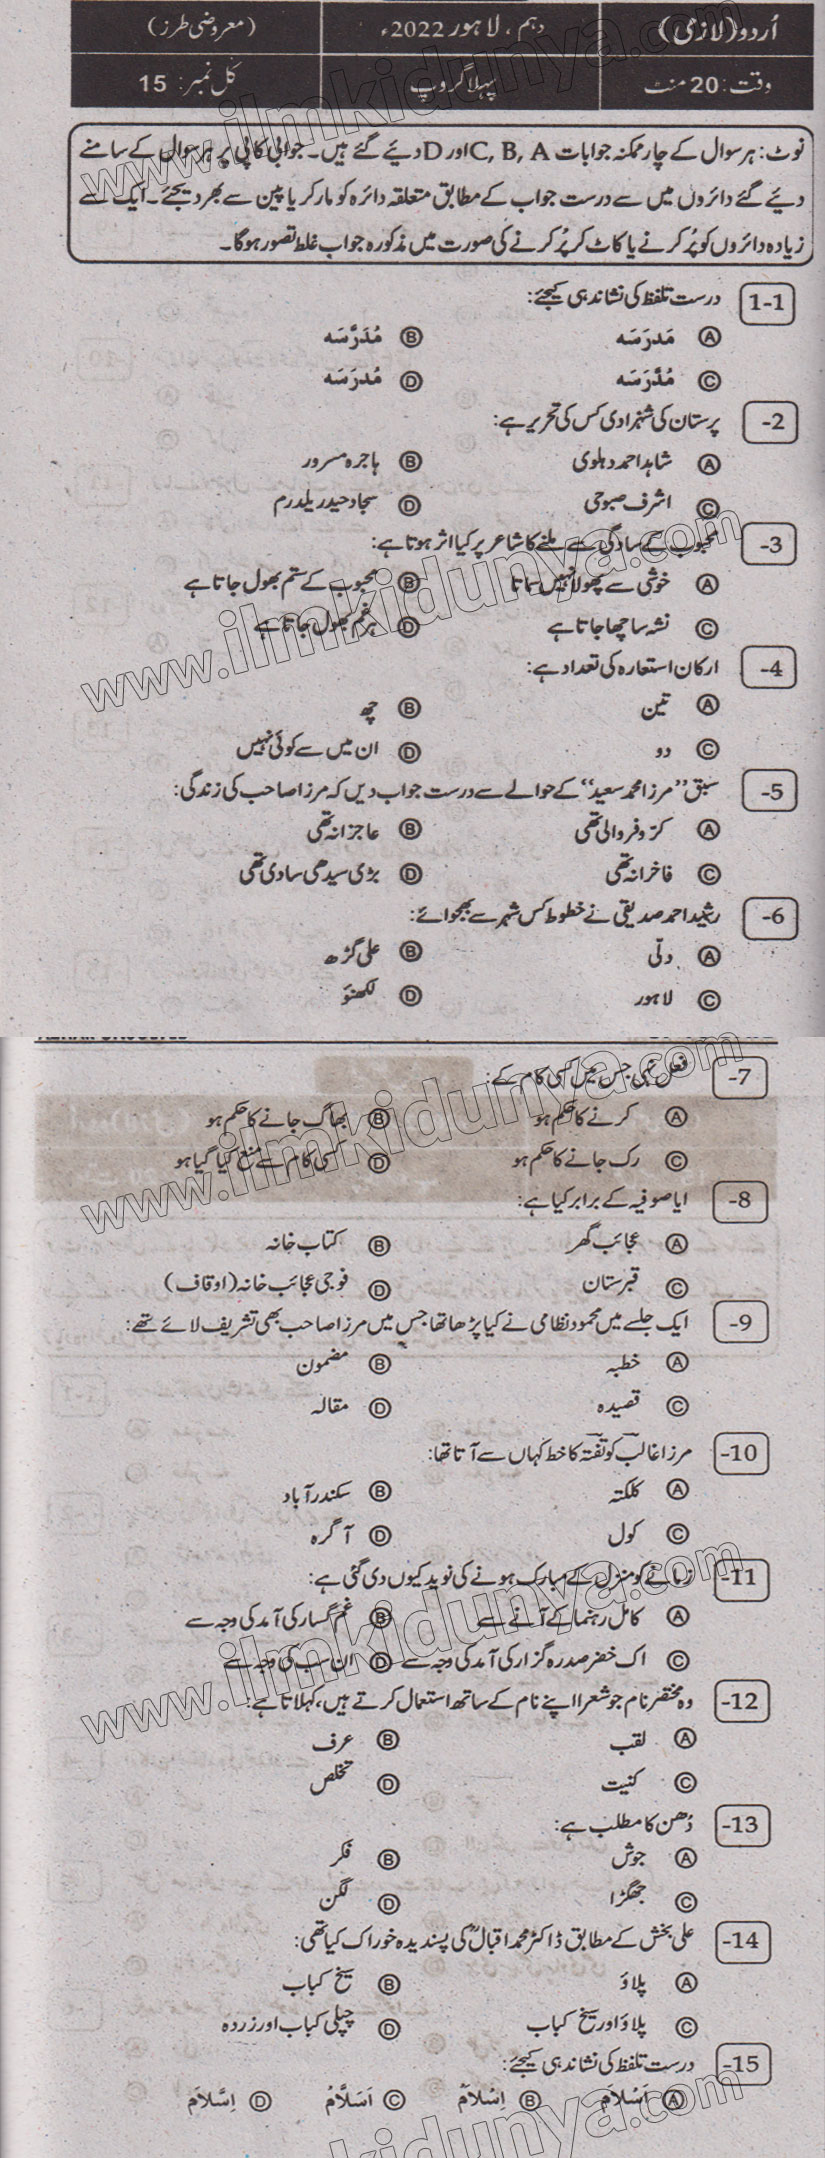 اُردو (لازمی)
دہم، لاہور 2022ء
(معروضی طرز)
وقت: 20 منٹ
پہلا گروپ
کل نمبر: 15
نوٹ: ہر سوال کے چار ممکنہ جوابات C, B, A اور D دیئے گئے ہیں۔ جوابی کاپی پر ہر سوال کے سامنے
دیئے گئے دائروں میں سے درست جواب کے مطابق متعلقہ دائرہ کو مارکر یا پین سے بھر دیجئے۔ ایک سے
زیادہ دائروں کو پُر کرنے یا کاٹ کر پُر کرنے کی صورت میں مذکورہ جواب غلط تصور ہوگا۔
1-1 درست تلفظ کی نشاندہی کیجئے:
Ⓐ مَدرَسَہ Ⓑ مُدَرَّسَہ
Ⓒ مُدَّرَسَہ Ⓓ مُدرَسَہ
-2 پرستان کی شہزادی کس کی تحریر ہے:
Ⓐ شاہد احمد دہلوی Ⓑ ہاجرہ مسرور
Ⓒ اشرف صبوحی Ⓓ سجاد حیدر یلدرم
-3 محبوب کے سادگی سے ملنے کا شاعر پر کیا اثر ہوتا ہے:
Ⓐ خوشی سے پھولا نہیں سماتا Ⓑ محبوب کے ستم بھول جاتا ہے
Ⓒ نشہ سا چھا جاتا ہے Ⓓ ہر غم بھول جاتا ہے
-4 ارکان استعارہ کی تعداد ہے:
Ⓐ تین Ⓑ چھ
Ⓒ دو Ⓓ ان میں سے کوئی نہیں
-5 سبق ”مرزا محمد سعید“ کے حوالے سے درست جواب دیں کہ مرزا صاحب کی زندگی:
Ⓐ کرّوفر والی تھی Ⓑ عاجزانہ تھی
Ⓒ فاخرانہ تھی Ⓓ بڑی سیدھی سادی تھی
-6 رشید احمد صدیقی نے خطوط کس شہر سے بھجوائے:
Ⓐ دلّی Ⓑ علی گڑھ
Ⓒ لاہور Ⓓ لکھنؤ
-7 فعل نہی جس میں کسی کام کے:
Ⓐ کرنے کا حکم ہو Ⓑ بھاگ جانے کا حکم ہو
Ⓒ رک جانے کا حکم ہو Ⓓ کسی کام سے منع کیا گیا ہو
-8 ایا صوفیہ کے برابر کیا ہے:
Ⓐ عجائب گھر Ⓑ کتاب خانہ
Ⓒ قبرستان Ⓓ فوجی عجائب خانہ (اوقاف)
-9 ایک جلسے میں محمود نظامی نے کیا پڑھا تھا جس میں مرزا صاحب بھی تشریف لائے تھے:
Ⓐ خطبہ Ⓑ مضمون
Ⓒ قصیدہ Ⓓ مقالہ
-10 مرزا غالب کو تفتہ کا خط کہاں سے آتا تھا:
Ⓐ کلکتہ Ⓑ سکندر آباد
Ⓒ کول Ⓓ آگرہ
-11 زمانے کو منزل کے مبارک ہونے کی نوید کیوں دی گئی ہے:
Ⓐ کامل رہنما کے آنے سے Ⓑ غم گسار کی آمد کی وجہ سے
Ⓒ اک خضر صد رہ گزار کی آمد کی وجہ سے Ⓓ ان سب کی وجہ سے
-12 وہ مختصر نام جو شعرا اپنے نام کے ساتھ استعمال کرتے ہیں، کہلاتا ہے:
Ⓐ لقب Ⓑ عرف
Ⓒ کنیت Ⓓ تخلص
-13 دُھن کا مطلب ہے:
Ⓐ جوش Ⓑ فکر
Ⓒ جھگڑا Ⓓ لگن
-14 علی بخش کے مطابق ڈاکٹر محمد اقبالؒ کی پسندیدہ خوراک کیا تھی:
Ⓐ پلاؤ Ⓑ سیخ کباب
Ⓒ پلاؤ اور سیخ کباب Ⓓ چپلی کباب اور زردہ
-15 درست تلفظ کی نشاندہی کیجئے:
Ⓐ اَسْلَام Ⓑ اِسْلَام Ⓒ اَسَلَّامُ Ⓓ اِسَّلَام
www.ilmkidunya.com
www.ilmkidunya.com
www.ilmkidunya.com
www.ilmkidunya.com
kidunya.com